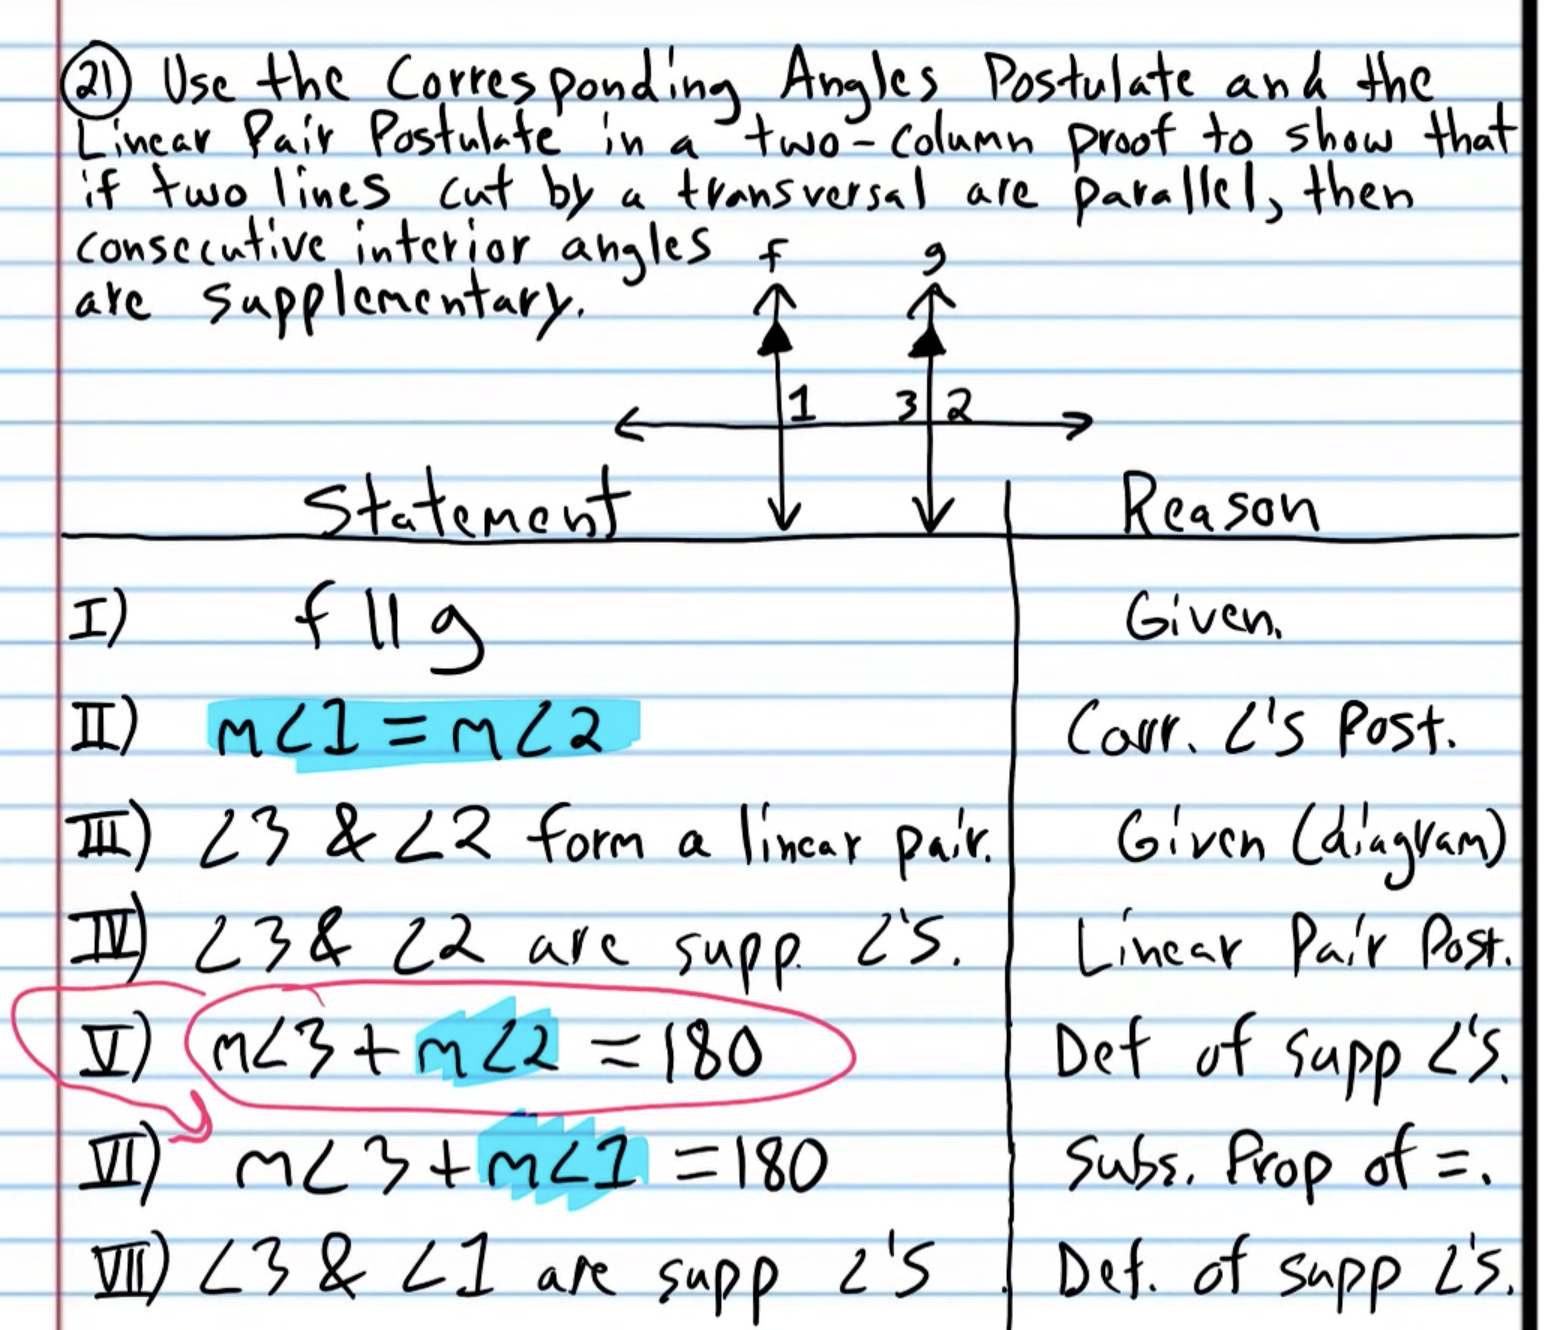 21) Use the Corresponding Angles Postulate and the
Linear Pair Postulate in a two-column proof to show that
if two lines cut by a transversal are parallel, then
consecutive interior angles
are supplementary.
f g
1 3 2
Statement Reason
I) f || g Given.
II) m∠1 = m∠2 Corr. ∠'s Post.
III) ∠3 & ∠2 form a linear pair. Given (diagram)
IV) ∠3 & ∠2 are supp. ∠'s. Linear Pair Post.
V) m∠3 + m∠2 = 180 Def of supp ∠'s.
VI) m∠3 + m∠1 = 180 Subs. Prop of =.
VII) ∠3 & ∠1 are supp ∠'s Def. of supp ∠'s.